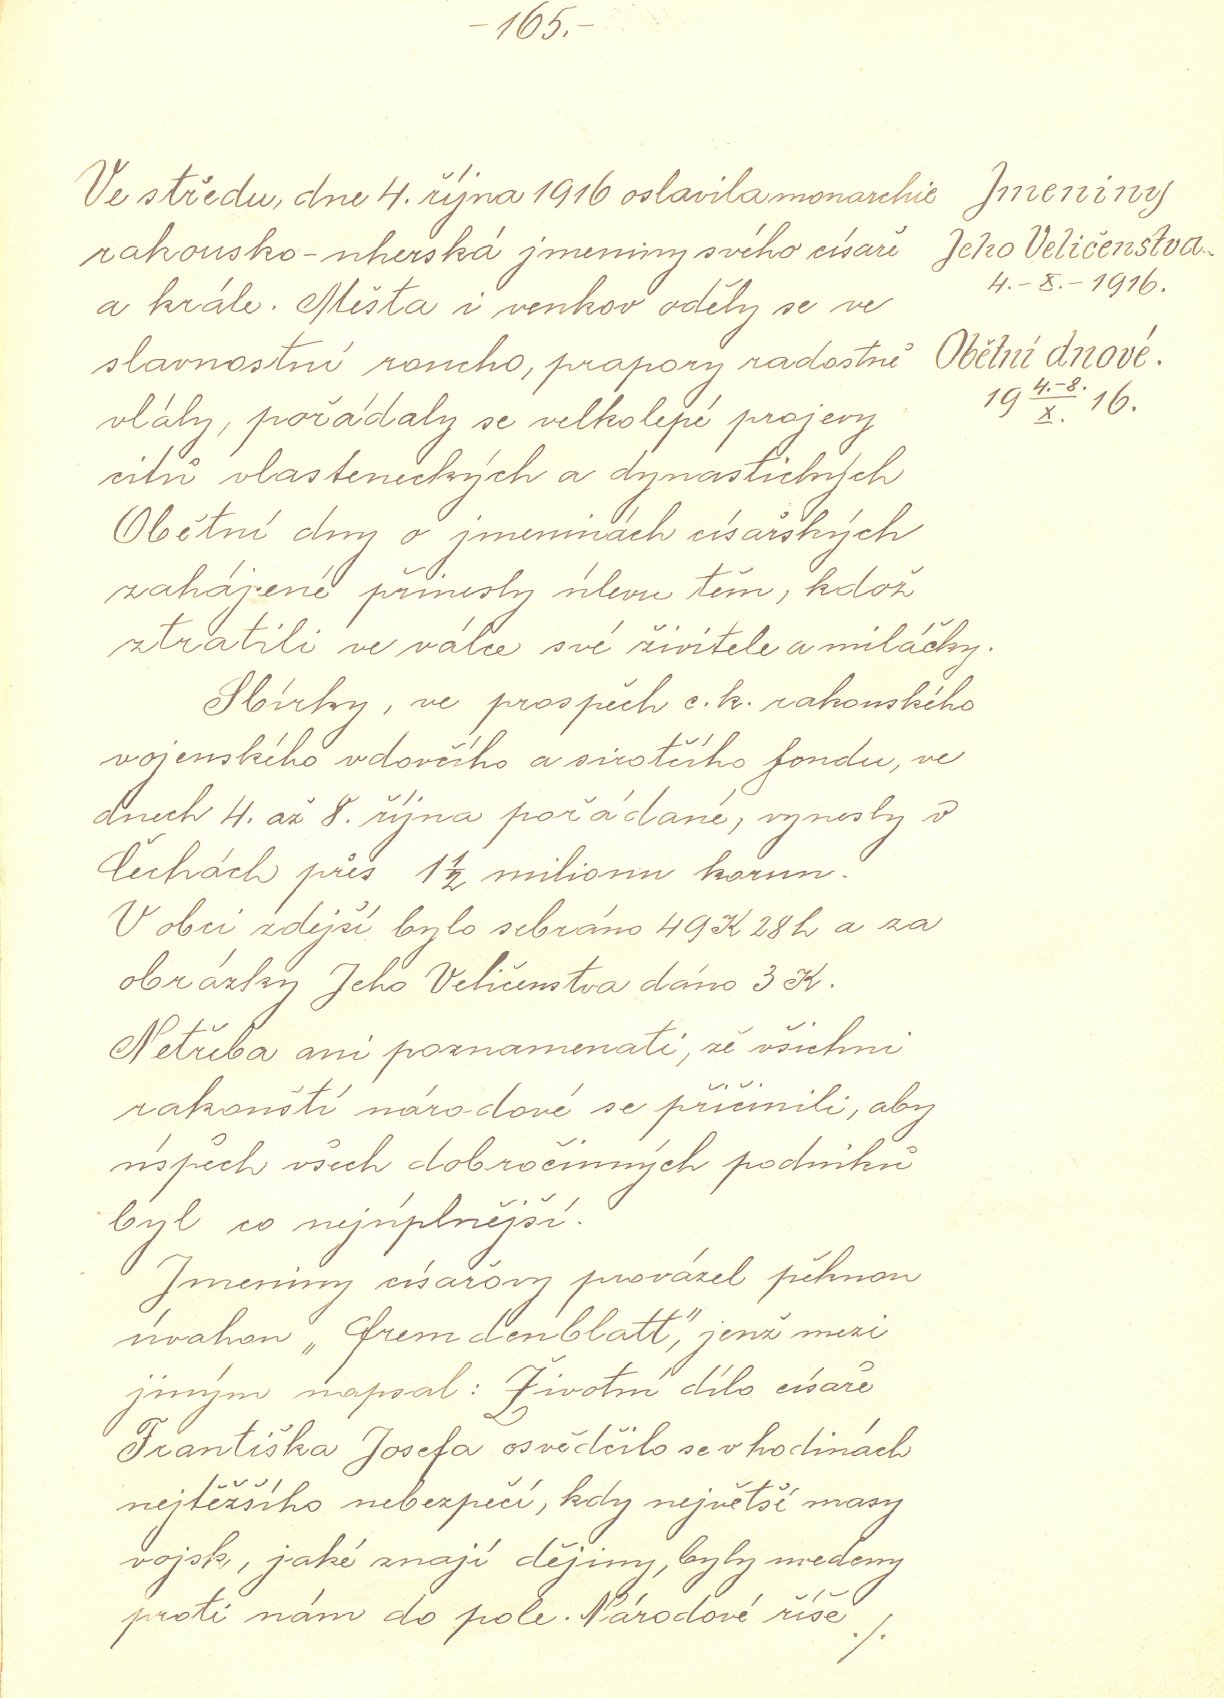 -165.-
Ve středu, dne 4. října 1916 oslavila monarchie
rakousko-uherská jmeniny svého císaře
a krále. Města i venkov oděly se ve
slavnostní roucho, prapory radostně
vlály, pořádaly se velkolepé projevy
citů vlasteneckých a dynastických
Obětní dny o jmeninách císařských
zahájené přinesly úlevu těm, kdož
ztratili ve válce své živitele a miláčky.
Sbírky, ve prospěch c. k. rakouského
vojenského vdovčího a sirotčího fondu, ve
dnech 4. až 8. října pořádané, vynesly v
Čechách přes 1 1/2 milionu korun.
V obci zdejší bylo sebráno 49 K 28 h a za
obrázky Jeho Veličenstva dáno 3 K.
Netřeba ani poznamenati, že všichni
rakouští národové se přičinili, aby
úspěch všech dobročinných podniků
byl co nejúplnější.
Jmeniny císařovy provázel pěknou
úvahou „Fremdenblatt", jenž mezi
jiným napsal: Životní dílo císaře
Františka Josefa osvědčilo se v hodinách
nejtěžšího nebezpečí, kdy největší masy
vojsk, jaké znají dějiny, byly vedeny
proti nám do pole. Národové říše ./.
Jmeniny
Jeho Veličenstva
4.-8.-1916.
Obětní dnové.
19 4.-8./X. 16.